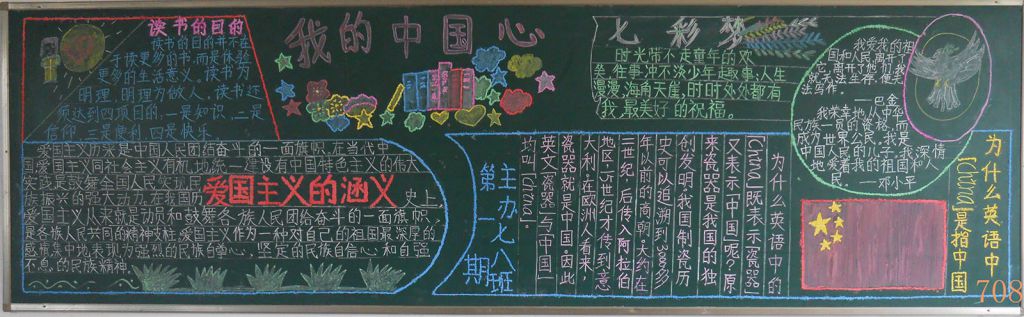 我的中国心
读书的目的
读书的目的并不在
于读更多的书,而是体验
更多的生活意义。读书为
明理,明理为做人。读书还
须达到四项目的,一是知识,二是
信仰,三是便利,四是快乐。
爱国主义的涵义
爱国主义历来是中国人民团结奋斗的一面旗帜,在当代中
国,爱国主义同社会主义有机地统一
建设有中国特色主义的伟大
实践是鼓舞全国人民实现民
族振兴的强大动力,在我国历
史上
爱国主义从来就是动员和鼓舞各族人民团结奋斗的一面旗帜,
是各族人民共同的精神支柱,爱国主义作为一种对自己的祖国最深厚的
感情集中地表现为强烈的民族自尊心,坚定的民族自信心和自强
不息的民族精神。
七彩梦
时光带不走童年的欢
往事冲不淡少年趣事;人生
漫漫,海角天涯,时时处处都有
我最美好的祝福。
我爱我的祖
国和人民,离开了
它,我无法生存,更
无法写作。
——巴金
我荣幸地从中华
民族一员的资格,而
成为世界公民。我是
中国人民的儿子,我深情
地爱着我的祖国和
人民。——邓小平
为什么英语中
「China」是指中国
为什么英语中的
「China」既表示「瓷器」
又表示「中国」呢?原
来瓷器是我国的独
创发明,我国制瓷历
史可以追溯到3000多
年以前的商朝,大约在
11世纪后传入阿拉伯
地区,15世纪才传到意
大利,在欧洲人看来,
瓷器就是中国,因此
英文「瓷器」与「中国」
均叫「China」。
主办七〇八班
第一期
708